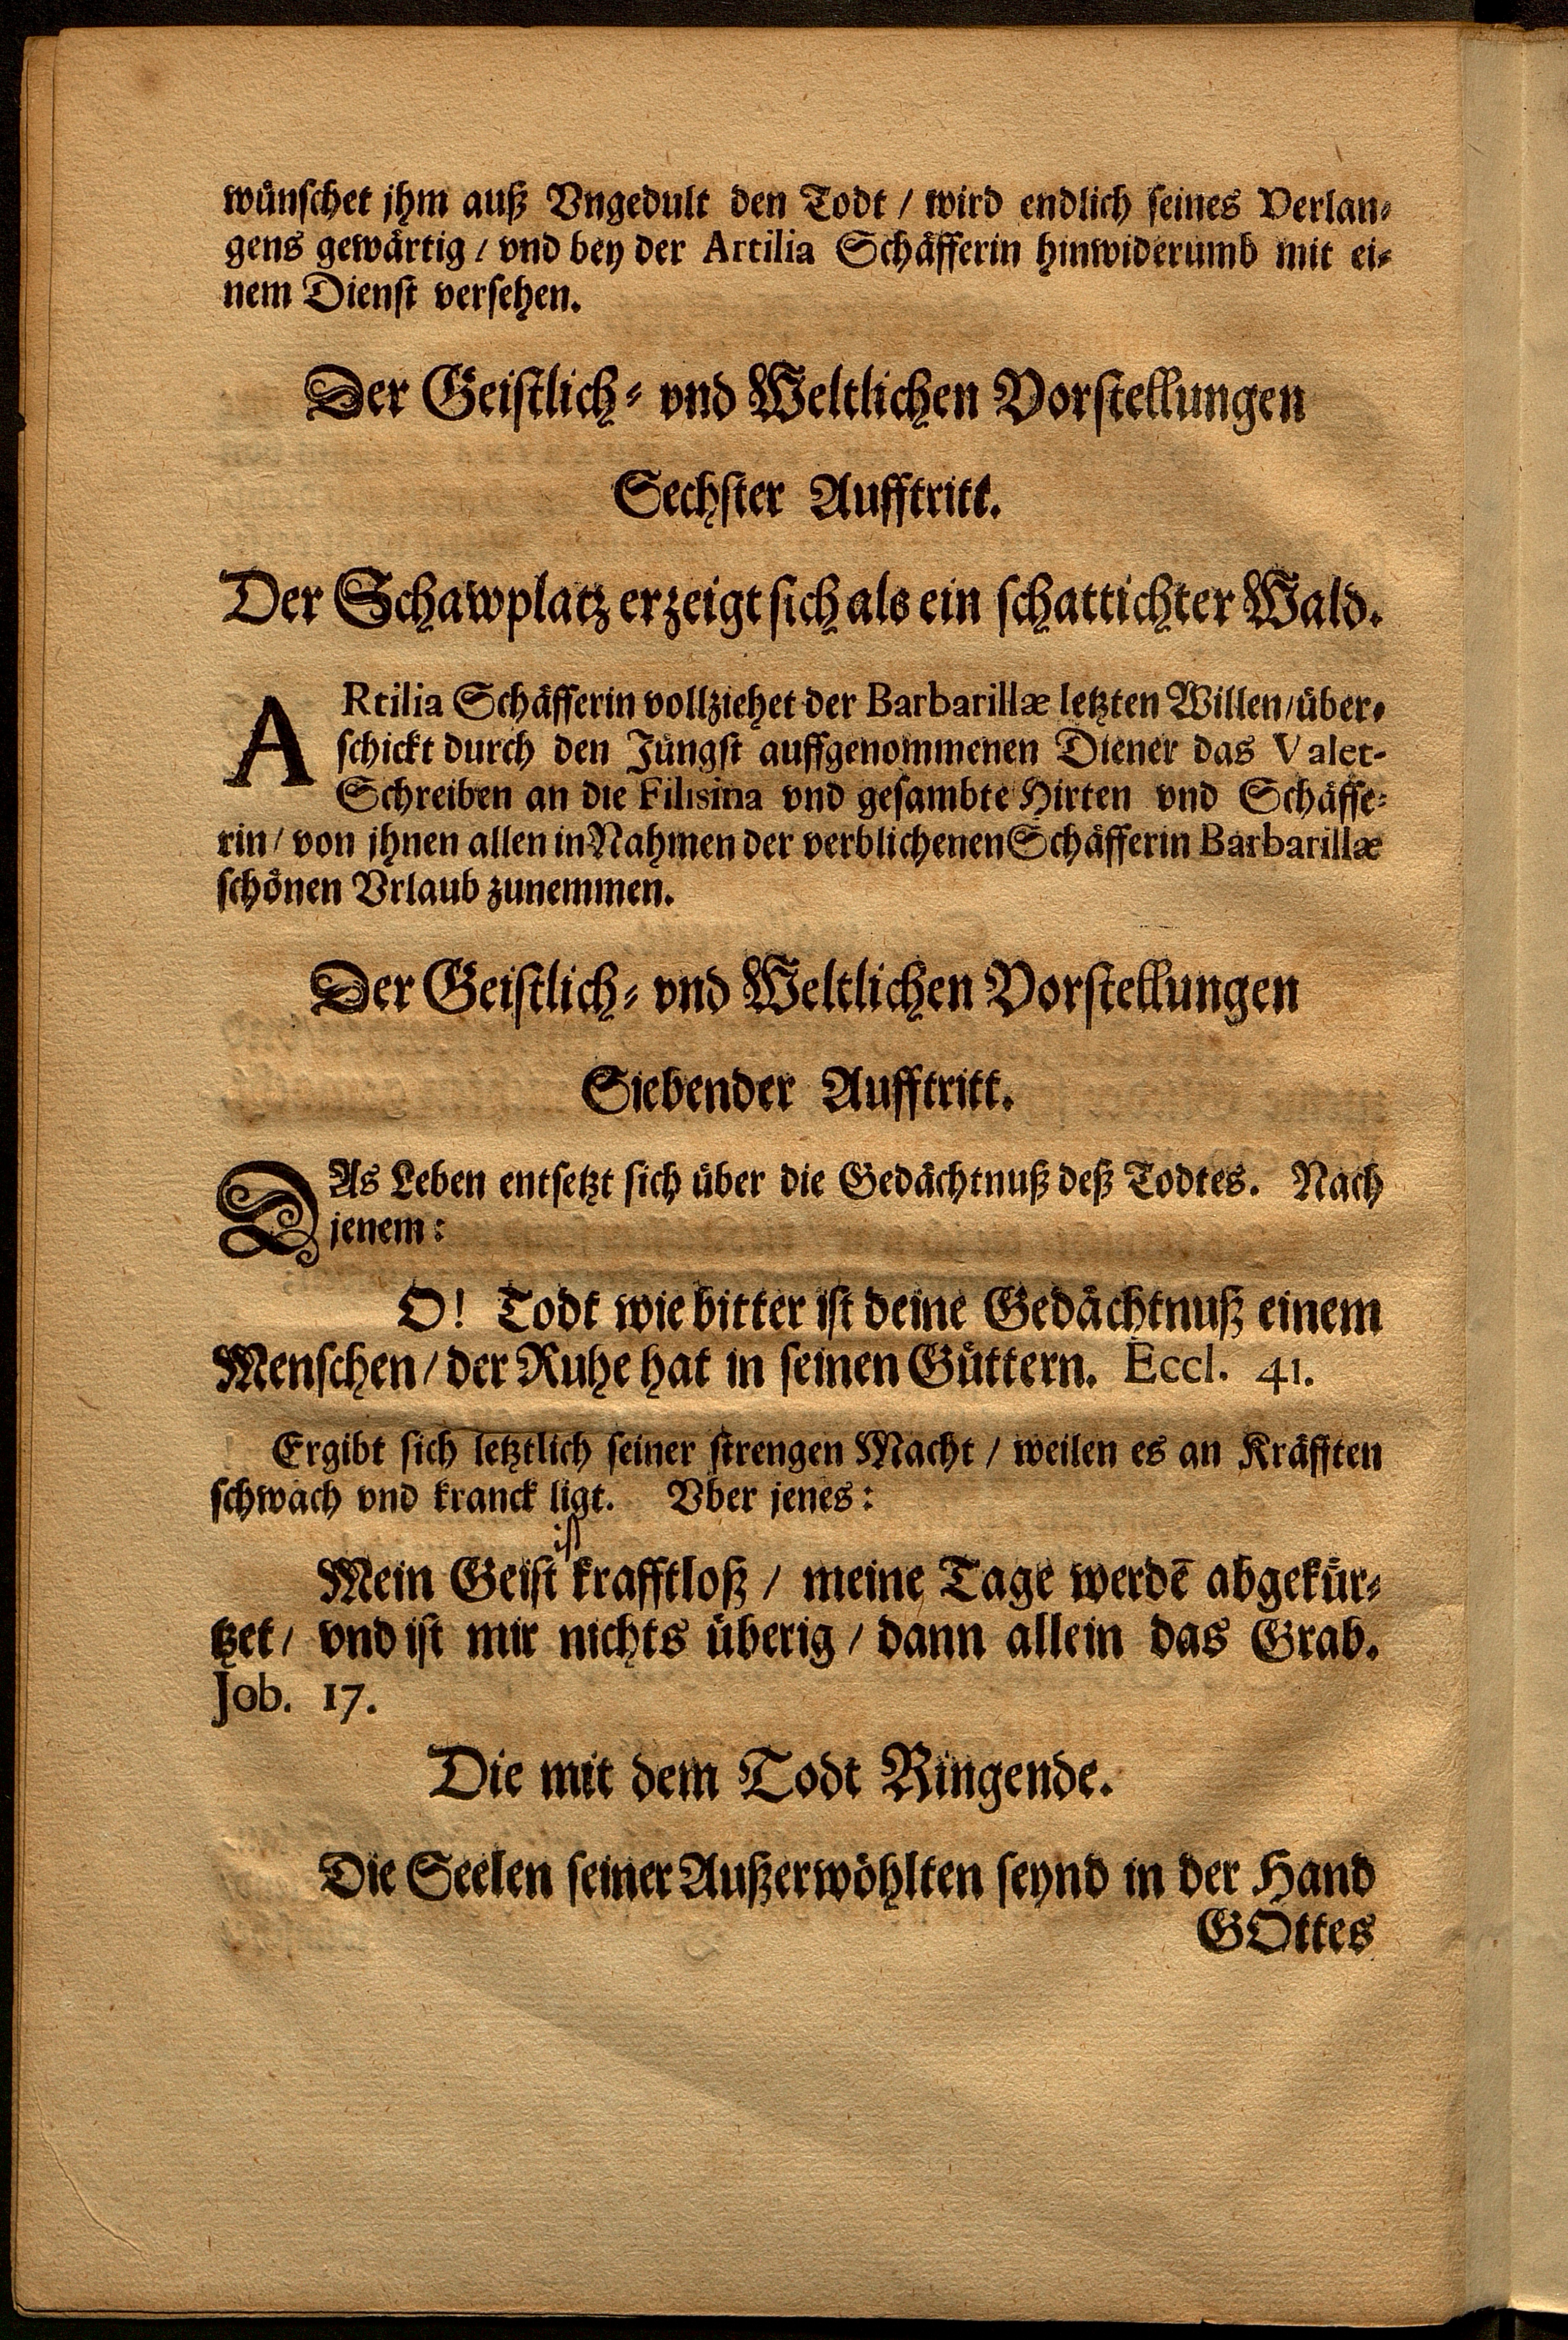 wünschet jhm auß Vngedult den Todt / wird endlich seines Verlan-
gens gewärtig / vnd bey der Artilia Schäfferin hinwiderumb mit ei-
nem Dienst versehen.
Der Geistlich- vnd Weltlichen Vorstellungen
Sechster Aufftritt.
Der Schawplatz erzeigt sich als ein schattichter Wald.
ARtilia Schäfferin vollziehet der Barbarillæ letzten Willen / über-
schickt durch den Jüngst auffgenommenen Diener das Valet-
Schreiben an die Filisina vnd gesambte Hirten vnd Schäffe-
rin / von jhnen allen in Nahmen der verblichenen Schäfferin Barbarillæ
schönen Vrlaub zunemmen.
Der Geistlich- vnd Weltlichen Vorstellungen
Siebender Aufftritt.
DAs Leben entsetzt sich über die Gedächtnuß deß Todtes. Nach
jenem:
O! Todt wie bitter ist deine Gedächtnuß einem
Menschen / der Ruhe hat in seinen Güttern. Eccl. 41.
Ergibt sich letztlich seiner strengen Macht / weilen es an Kräfften
schwach vnd kranck ligt. Vber jenes:
ist
Mein Geist krafftloß / meine Tage werdē abgekür-
tzet / vnd ist mir nichts überig / dann allein das Grab.
Job. 17.
Die mit dem Todt Ringende.
Die Seelen seiner Außerwöhlten seynd in der Hand
GOttes